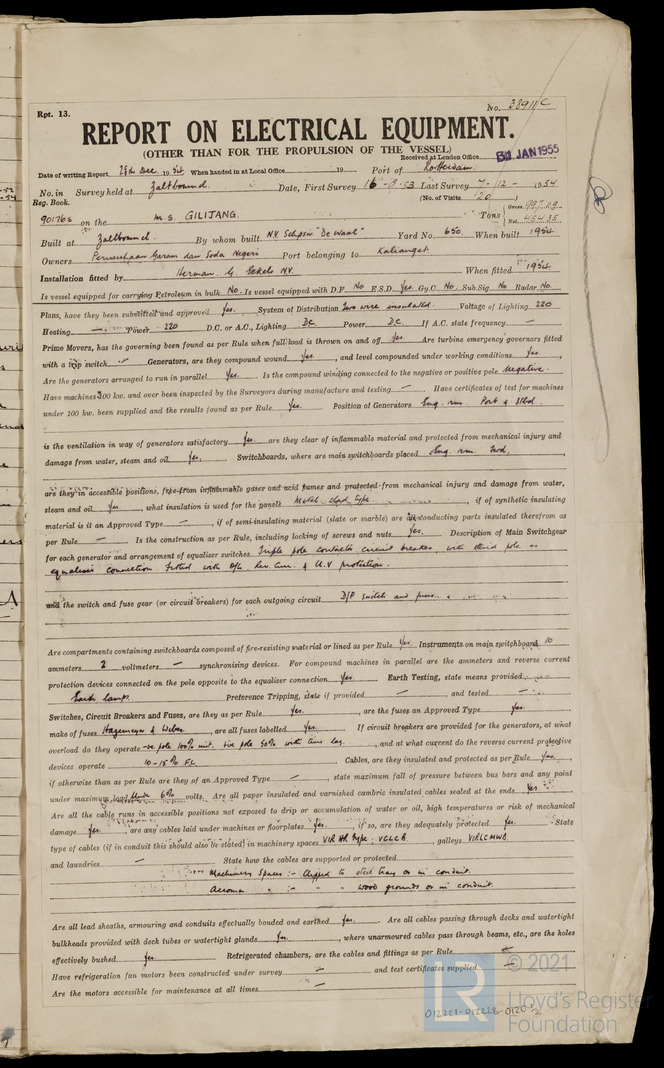 Rpt. 13.
No. 33911/C
REPORT ON ELECTRICAL EQUIPMENT.
(OTHER THAN FOR THE PROPULSION OF THE VESSEL)
Received at London Office JAN 1955
Date of writing Report 28th Dec. 1954 When handed in at Local Office 19 Port of Rotterdam.
No. in Reg. Book. Survey held at Zaltbommel. Date, First Survey 16-3-53 Last Survey 7-12-1954
(No. of Visits 20)
90176s on the M.S. GILIJANG. Tons Gross 997.09 Net 454.35
Built at Zaltbommel. By whom built N.V. Schpsw "De Waal" Yard No. 650. When built 1954
Owners Perusahaan Garam dan Soda Negeri Port belonging to Kalianget
Installation fitted by Herman G. Eekels N.V. When fitted 1954.
Is vessel equipped for carrying Petroleum in bulk No. Is vessel equipped with D.F. No E.S.D. Yes. Gy.C. No Sub.Sig. No Radar No.
Plans, have they been submitted and approved Yes. System of Distribution Two wire insulated. Voltage of Lighting 220
Heating — Power 220 D.C. or A.C., Lighting DC. Power DC. If A.C. state frequency —
Prime Movers, has the governing been found as per Rule when full load is thrown on and off Yes. Are turbine emergency governors fitted
with a trip switch — Generators, are they compound wound Yes., and level compounded under working conditions Yes.,
Are the generators arranged to run in parallel Yes. Is the compound winding connected to the negative or positive pole Negative.
Have machines 100 kw. and over been inspected by the Surveyors during manufacture and testing — Have certificates of test for machines
under 100 kw. been supplied and the results found as per Rule Yes. Position of Generators Eng. rm. Port & Stbd.
is the ventilation in way of generators satisfactory Yes. are they clear of inflammable material and protected from mechanical injury and
damage from water, steam and oil Yes. Switchboards, where are main switchboards placed Eng. rm. Fwd.
are they in accessible positions, free from inflammable gases and acid fumes and protected from mechanical injury and damage from water,
steam and oil Yes., what insulation is used for the panels Metal clad type, if of synthetic insulating
material is it an Approved Type —, if of semi-insulating material (slate or marble) are all conducting parts insulated therefrom as
per Rule — Is the construction as per Rule, including locking of screws and nuts Yes. Description of Main Switchgear
for each generator and arrangement of equaliser switches Triple pole contactor circuit breaker, with third pole as
equaliser connection. Fitted with O/L Rev. Curr. & U.V protection.
and the switch and fuse gear (or circuit breakers) for each outgoing circuit D/P switch and fuses.
Are compartments containing switchboards composed of fire-resisting material or lined as per Rule Yes. Instruments on main switchboard 10
ammeters 2 voltmeters — synchronising devices. For compound machines in parallel are the ammeters and reverse current
protection devices connected on the pole opposite to the equaliser connection Yes. Earth Testing, state means provided
Earth lamps Preference Tripping, state if provided —, and tested —
Switches, Circuit Breakers and Fuses, are they as per Rule Yes., are the fuses an Approved Type Yes.
make of fuses Hagemeyer & Weber, are all fuses labelled Yes. If circuit breakers are provided for the generators, at what
overload do they operate -ve pole 100% inst. +ve pole 50% with time lag., and at what current do the reverse current protective
devices operate 10-15% F.L. Cables, are they insulated and protected as per Rule Yes.
if otherwise than as per Rule are they of an Approved Type —, state maximum fall of pressure between bus bars and any point
under maximum load 6% volts. Are all paper insulated and varnished cambric insulated cables sealed at the ends Yes.
Are all the cable runs in accessible positions not exposed to drip or accumulation of water or oil, high temperatures or risk of mechanical
damage Yes., are any cables laid under machines or floorplates Yes., if so, are they adequately protected Yes. State
type of cables (if in conduit this should also be stated) in machinery spaces VIR HR Type, VCLCB, galleys VIRLCMWB.
and laundries — State how the cables are supported or protected
Machinery Spaces :- Clipped to steel trays or in conduit.
Accomn " :- " " wood grounds or in conduit.
Are all lead sheaths, armouring and conduits effectually bonded and earthed Yes. Are all cables passing through decks and watertight
bulkheads provided with deck tubes or watertight glands Yes., where unarmoured cables pass through beams, etc., are the holes
effectively bushed Yes. Refrigerated chambers, are the cables and fittings as per Rule —
Have refrigeration fan motors been constructed under survey — and test certificates supplied —
Are the motors accessible for maintenance at all times —
© 2021
Lloyd's Register
Foundation
012221-012228-0120-2